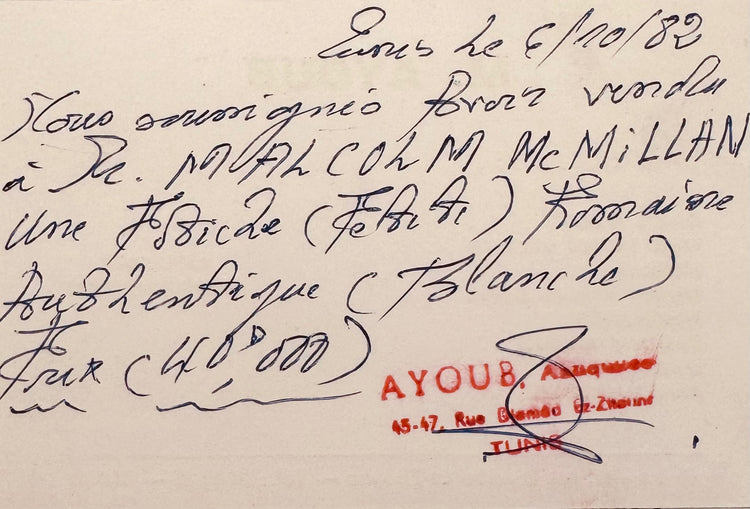 Tunis le 6/10/82
Nous soussignés Avoir vendu
à Mr. MALCOLM McMiLLAN
une (Petite) Romaine
Authentique (Blanche)
Prix (40'000)
AYOUB.
45-47, Rue Djemâa Ez-Zitouna
TUNIS